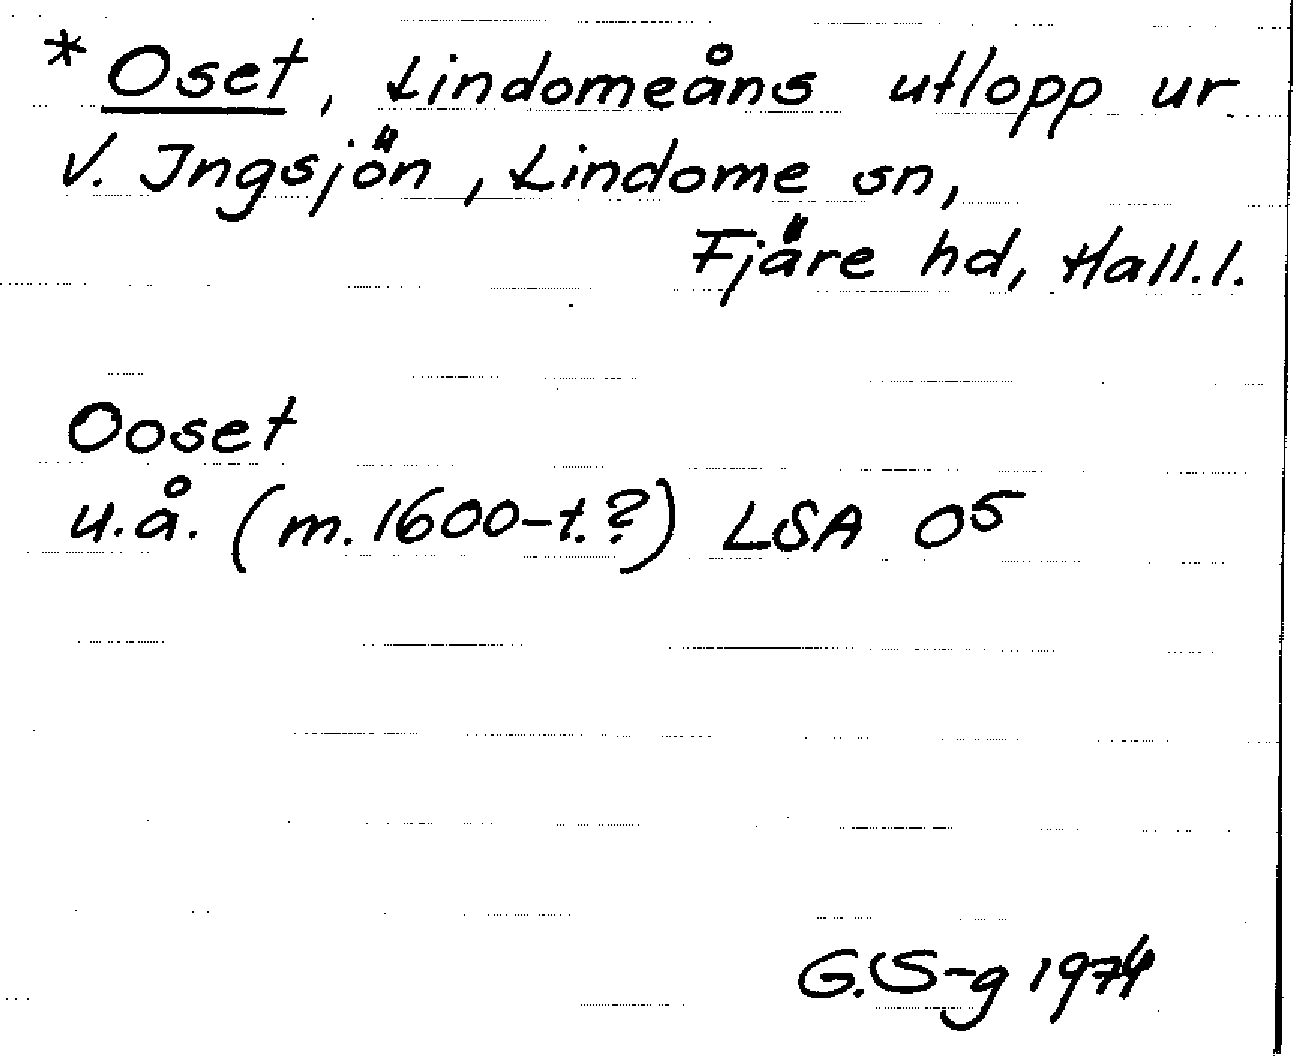 * Oset, Lindomeåns utlopp ur
V. Ingsjön, Lindome sn,
Fjäre hd, Hall.l.
Ooset
u.å. (m. 1600-t.?) LSA O⁵
G.S-g 1974